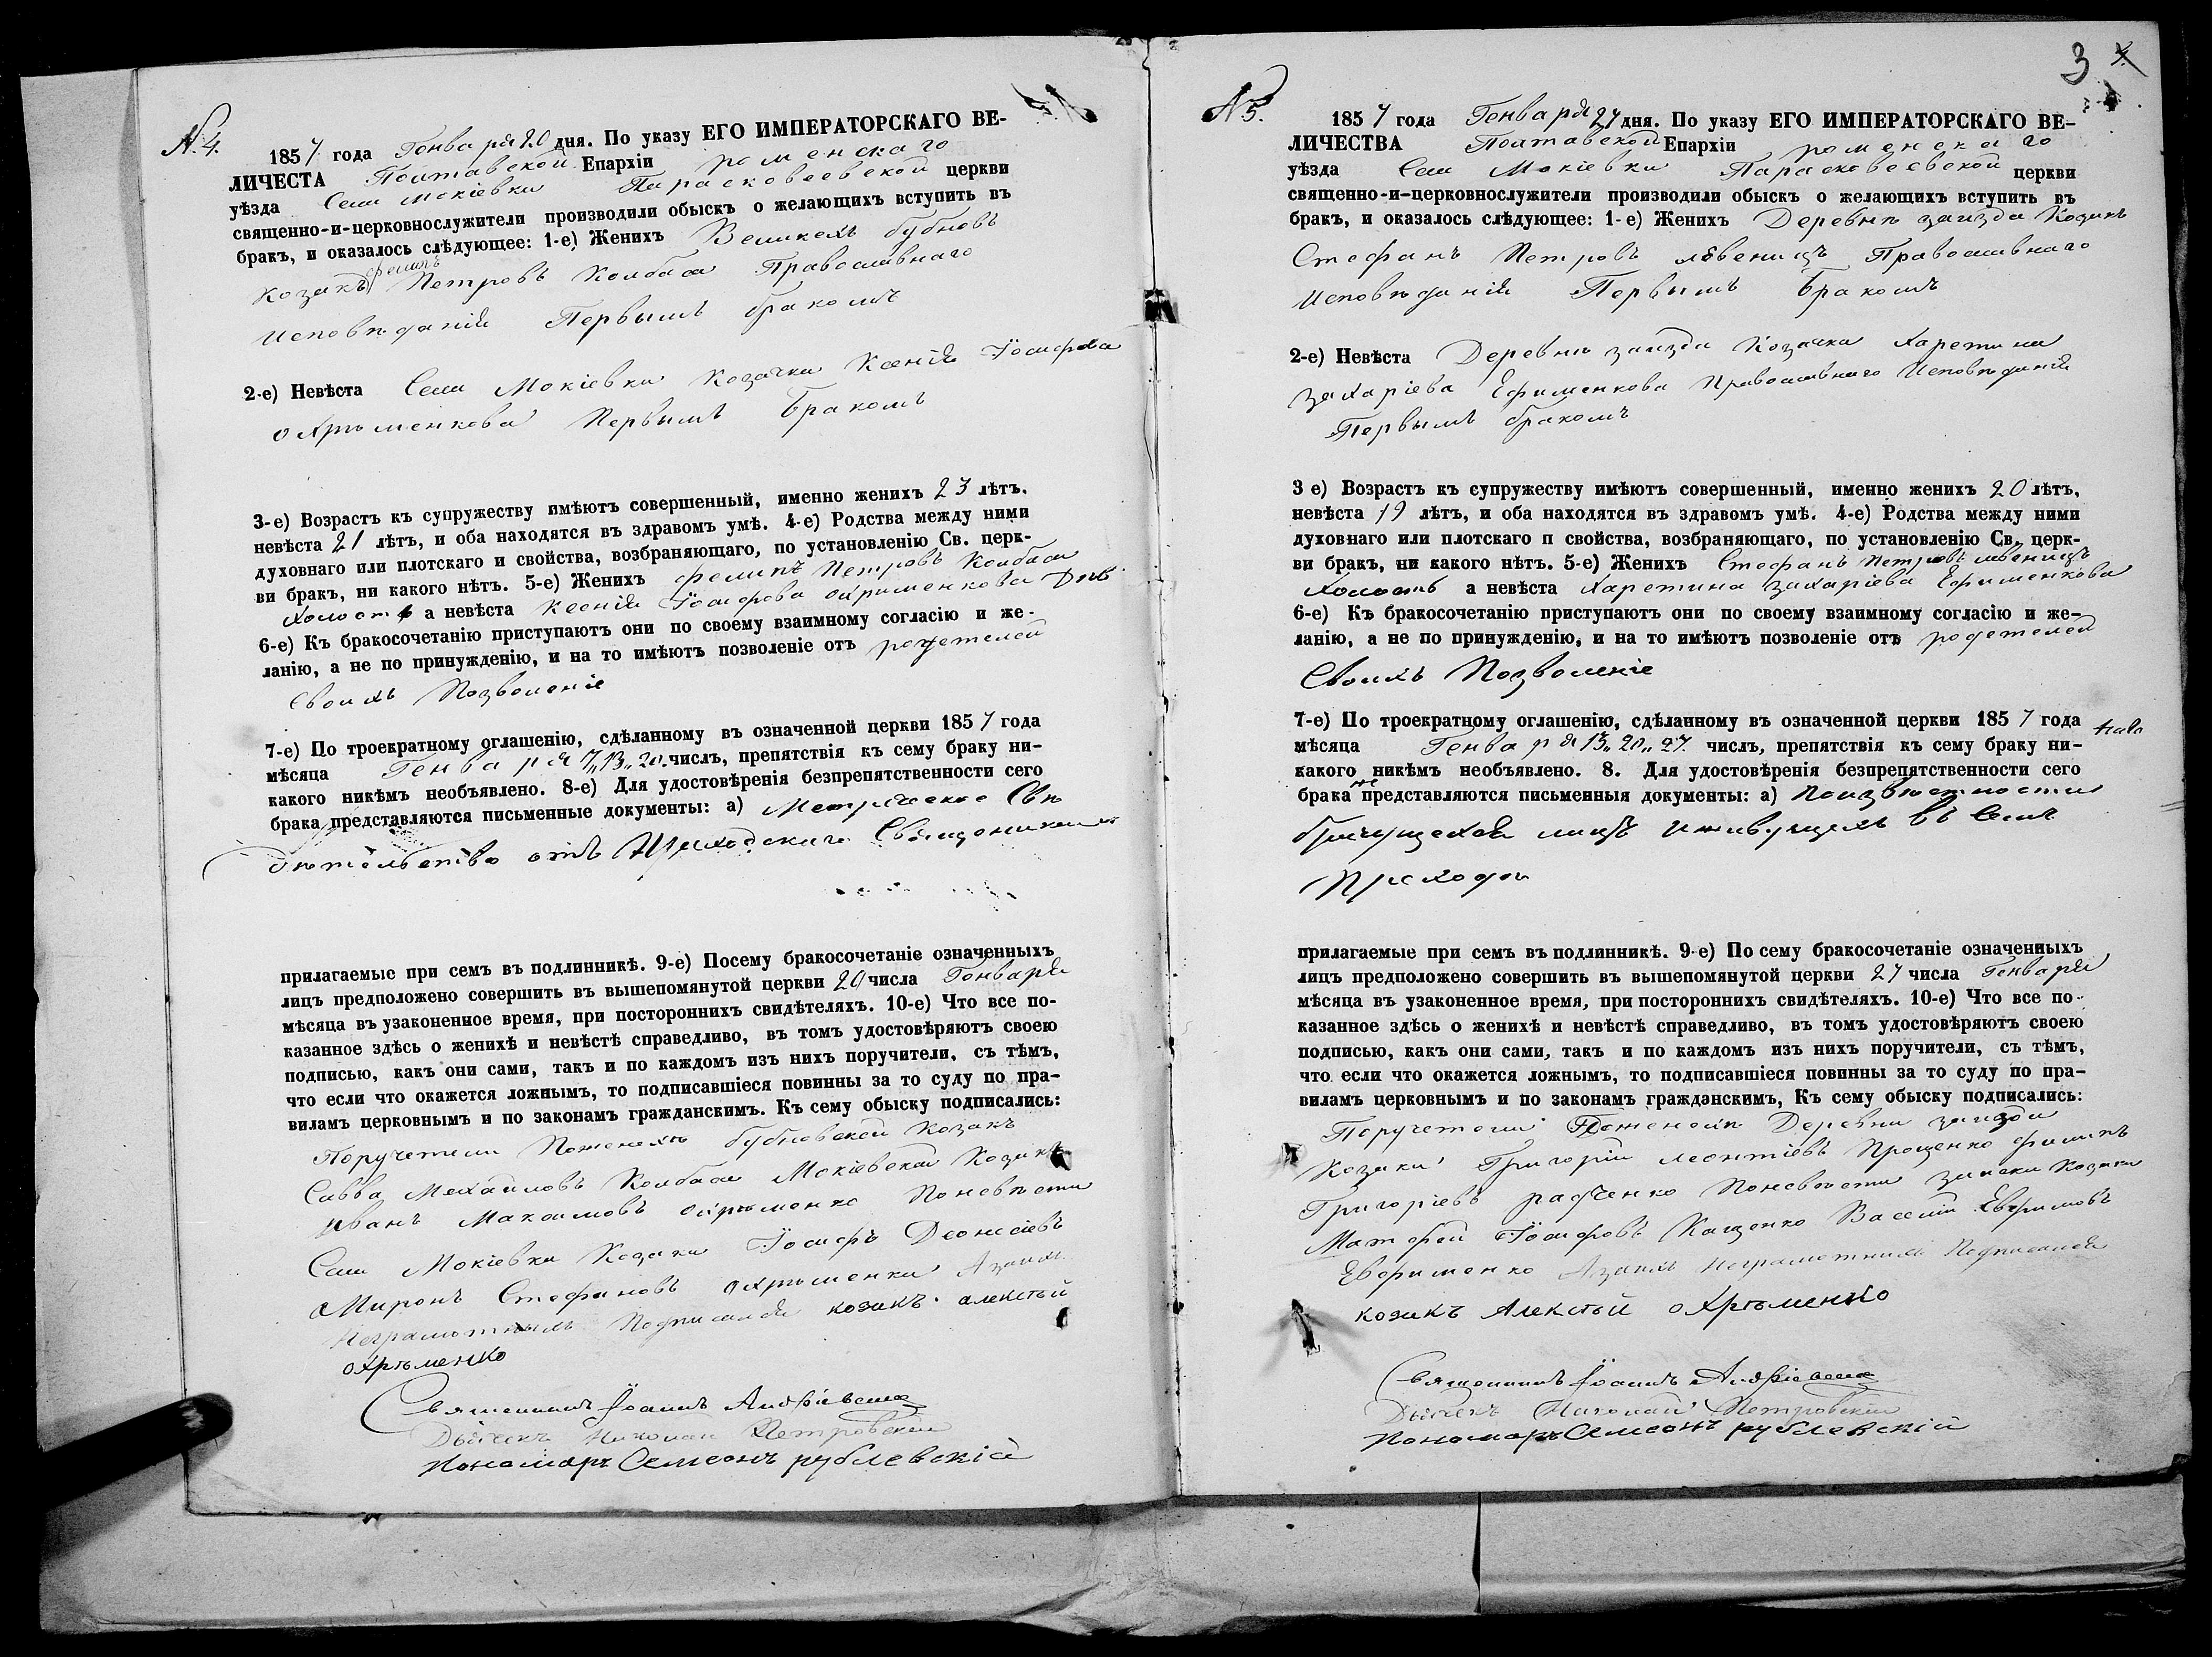 № 4.
1857 года Генваря 20 дня. По указу ЕГО ИМПЕРАТОРСКАГО ВЕ-
ЛИЧЕСТА Полтавской Епархіи роменскаго
уѣзда Села Мокіевки Парасковеевской церкви
священно-и-церковнослужители производили обыскъ о желающихъ вступить въ
бракъ, и оказалось слѣдующее: 1-е) Женихъ Великихъ бубновъ
козакъ филипъ Петровъ Колбаса Православнаго
исповѣданія Первымъ бракомъ
2-е) Невѣста Села Мокіевки козачка Ксенія Іосифова
охрѣменкова Первымъ бракомъ
3-е) Возрастъ къ супружеству имѣютъ совершенный, именно женихъ 23 лѣтъ,
невѣста 21 лѣтъ, и оба находятся въ здравомъ умѣ. 4-е) Родства между ними
духовнаго или плотскаго и свойства, возбраняющаго, по установленію Св. церк-
ви бракъ, ни какого нѣтъ. 5-е) Женихъ филипъ Петровъ Колбаса
холостъ а невѣста Ксенія Іосифова охрименкова
6-е) Къ бракосочетанію приступаютъ они по своему взаимному согласію и же-
ланію, а не по принужденію, и на то имѣютъ позволеніе отъ родетелей
своихъ Позволеніе
7-е) По троекратному оглашенію, сдѣланному въ означенной церкви 1857 года
мѣсяца Генваря 7,, 13,, 20. числъ, препятствія къ сему браку ни-
какого никѣмъ необъявлено. 8-е) Для удостовѣренія безпрепятственности сего
брака представляются письменные документы: а) Метрическое Свѣ
дѣтельство отъ Приходскаго Священника
прилагаемые при семъ въ подлинникѣ. 9-е) Посему бракосочетаніе означенныхъ
лицъ предположено совершить въ вышепомянутой церкви 20 числа Генваря
мѣсяца въ узаконенное время, при постороннихъ свидѣтеляхъ. 10-е) Что все по-
казанное здѣсь о женихѣ и невѣстѣ справедливо, въ томъ удостовѣряютъ своею
подписью, какъ они сами, такъ и по каждомъ изъ нихъ поручители, съ тѣмъ,
что если что окажется ложнымъ, то подписавшіеся повинны за то суду по пра-
виламъ церковнымъ и по законамъ гражданскимъ. Къ сему обыску подписались:
Поручетели Поженехѣ бубновскей Козакъ
Савва Михайловъ Колбаса Мокіевской Козакъ
иванъ Максимовъ охрѣменко Поневѣсти
Села Мокіевки Козаки Іосифъ Деонисіевъ
Миронъ Стефановъ охрѣменки Азаихъ
Неграмотныхъ Подписался козакъ алексѣй
охрѣменко
Священникъ Іоаннъ
Дьячекъ Николай Петровскій
Пономарь Семеонъ рублевскій
3
№ 5.
1857 года Генваря 27 дня. По указу ЕГО ИМПЕРАТОРСКАГО ВЕ-
ЛИЧЕСТВА Полтавской Епархіи роменскаго
уѣзда Села Мокіевки Парасковеевской церкви
священно-и-церковнослужители производили обыскъ о желающихъ вступить въ
бракъ, и оказалось слѣдующее: 1-е) Женихъ Деревнѣ заизда Козакъ
Стефанъ Петровъ Православнаго
Исповѣданія Первымъ бракомъ
2-е) Невѣста Деревнѣ заизда Козачка Харетина
захаріева Ефименкова Православнаго Исповѣданія
Первымъ бракомъ
3 е) Возрастъ къ супружеству имѣютъ совершенный, именно женихъ 20 лѣтъ,
невѣста 19 лѣтъ, и оба находятся въ здравомъ умѣ. 4-е) Родства между ними
духовнаго или плотскаго п свойства, возбраняющаго, по установленію Св. церк-
ви бракъ, ни какого нѣтъ. 5-е) Женихъ Стефанъ Петровъ
Холостъ а невѣста Харетина захаріева Ефименкова
6-е) Къ бракосочетанію приступаютъ они по своему взаимному согласію и же-
ланію, а не по принужденію, и на то имѣютъ позволеніе отъ родетелей
Своихъ Позволеніе
7-е) По троекратному оглашенію, сдѣланному въ означенной церкви 1857 года
мѣсяца Генваря 13,, 20,, 27. числъ, препятствія къ сему браку ни-
какого никѣмъ необъявлено. 8. Для удостовѣренія безпрепятственности сего
брака не представляются письменныя документы: а) Поизвѣстности
лицъ въ Семъ
Приходѣ
прилагаемые при семъ въ подлинникѣ. 9-е) По сему бракосочетаніе означенныхъ
лицъ предположено совершить въ вышепомянутой церкви 27 числа Генваря
мѣсяца въ узаконенное время, при постороннихъ свидѣтеляхъ. 10-е) Что все по-
казанное здѣсь о женихѣ и невѣстѣ справедливо, въ томъ удостовѣряютъ своею
подписью, какъ они сами, такъ и по каждомъ изъ нихъ поручители, съ тѣмъ,
что если что окажется ложнымъ, то подписавшіеся повинны за то суду по пра-
виламъ церковнымъ и по законамъ гражданскимъ, Къ сему обыску подписались:
Поручетели Поженехѣ Деревни заизда
Козаки Григорій леонтіевъ Прощенко филипъ
Григоріевъ радченко Поневѣсти Козаки
Матфей Іосифовъ Кащенко Василій Евфимовъ
Евфименко Азаихъ Неграмотныхъ Подписался
козакъ Алексѣй охрѣменко
Священникъ Іоаннъ
Дьячекъ Николай Петровскій
Пономарь Семеонъ рублевскій